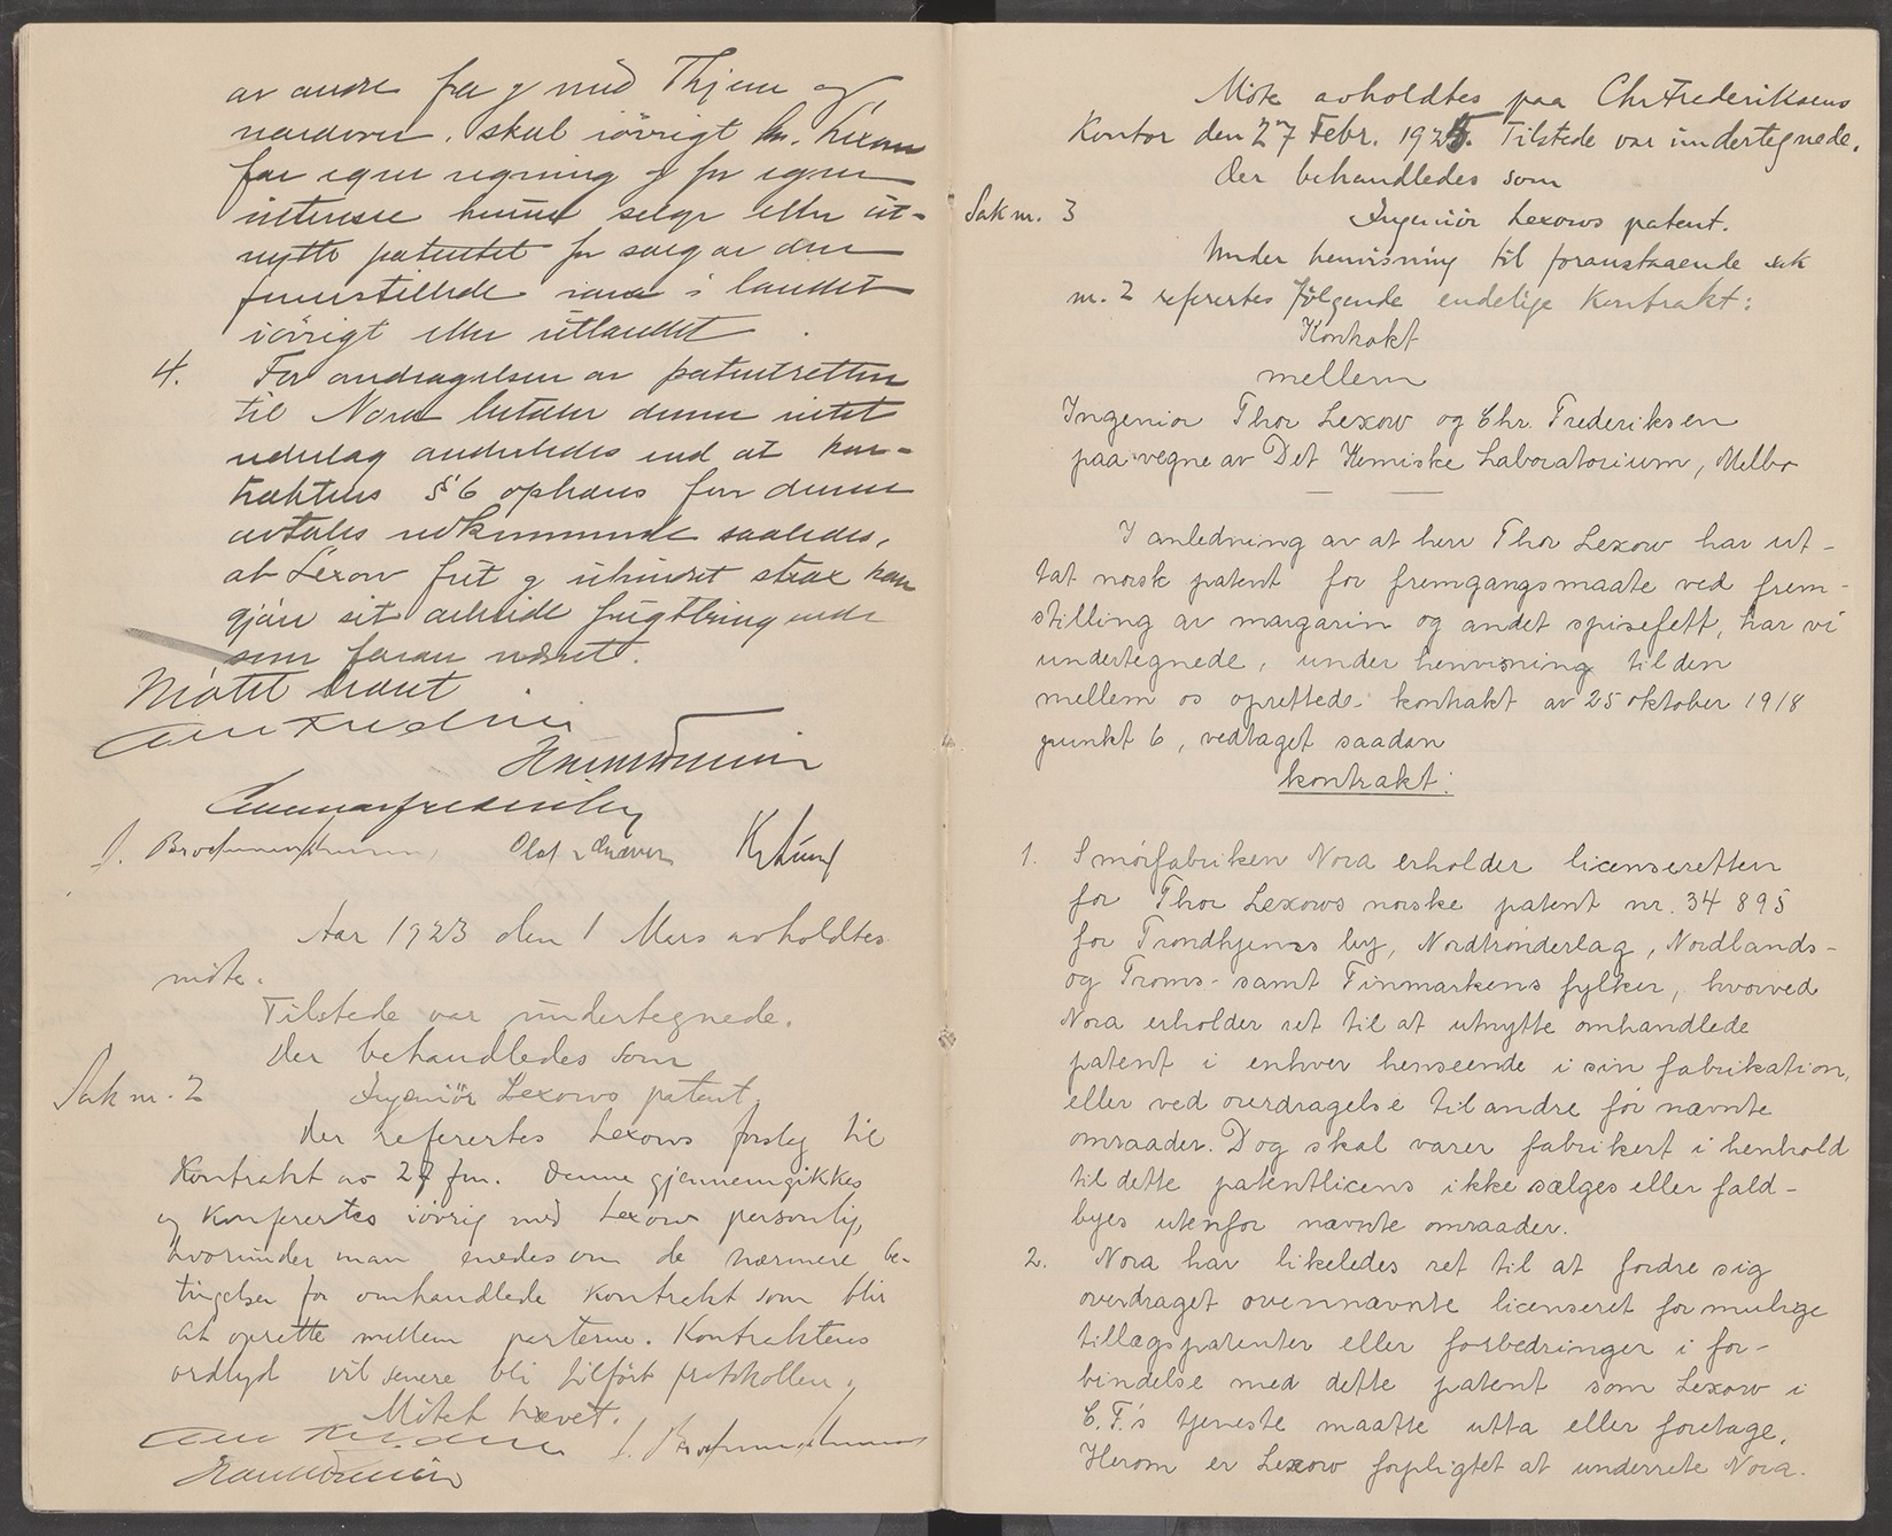 av andre fra og med Thjem og
nordover. skal iövrigt hr. Lexow
for egen regning og for egen
interesse kunne selge eller ut-
nytte patentet for salg av den
fremstillede vare i landet
iövrigt eller utlandet.
4. For andragelsen av patentretten
til Nora betaler denne intet
vederlag anderledes end at kon-
traktens § 6 ophæves for denne
avtales vedkommende saaledes,
at Lexow frit og uhindret strax kan
gjöre sit arbeide frugtbringende
som foran nævnt.
Mötet hævet.
Olaf
Aar 1923 den 1 Mars avholdtes
möte.
Tilstede var undertegnede.
Der behandledes som
Sak nr. 2 Ingeniör Lexows patent.
Der refertes Lexows forslag til
Kontrakt av 27 fm. Denne gjennemgikkes
og konferertes iövrig med Lexow personlig,
hvorunder man enedes om de nærmere be-
tingelser for omhandlede Kontrakt som blir
at oprette mellem parterne. Kontraktens
ordlyd vil senere bli tilfört protokollen.
Mötet hævet.
Möte avholdtes paa Chr Frederiksens
Kontor den 27 Febr. 1925. Tilstede var undertegnede.
Der behandledes som
Sak nr. 3 Ingeniör Lexows patent.
Under henvisning til foranstaaende sak
nr. 2 refertes fölgende endelige Kontrakt:
Kontrakt
mellem
Ingenior Thor Lexow og Chr. Frederiksen
paa vegne av Det Kemiske Laboratorium, Melbo
I anledning av at herr Thor Lexow har ut-
tat norsk patent for fremgangsmaate ved frem-
stilling av margarin og andet spisefett, har vi
undertegnede, under henvisning til den
mellem os oprettede kontrakt av 25 oktober 1918
punkt 6, vedtaget saadan
kontrakt:
1. Smörfabriken Nora erholder licenseretten
for Thor Lexows norske patent nr. 34 895
for Trondhjems by, Nordtrönderlag, Nordlands-
og Troms- samt Finmarkens fylker, hvorved
Nora erholder ret til at utnytte omhandlede
patent i enhver henseende i sin fabrikation,
eller ved overdragelse til andre for nævnte
omraader. Dog skal varer fabrikert i henhold
til dette patentlicens ikke sælges eller fald-
byes utenfor nævnte omraader.
2. Nora har likeledes ret til at fordre sig
overdraget ovennævnte licenseret for mulige
tillægspatenter eller forbedringer i for-
bindelse med dette patent som Lexow i
C. F.'s tjeneste maatte utta eller foretage.
Herom er Lexow forpligtet at underrete Nora.